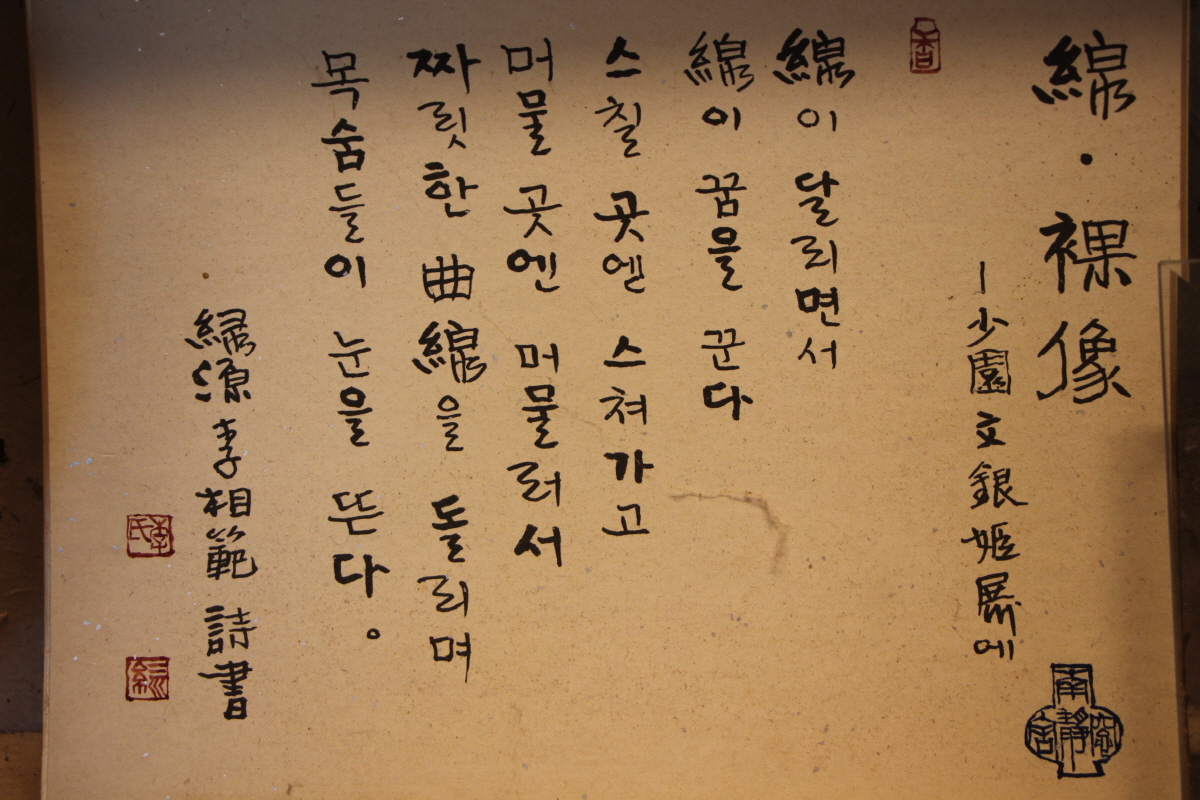 線・裸像
ㅡ少園 文銀姬展에
線이 달리면서
線이 꿈을 꾼다
스칠 곳엔 스쳐가고
머물 곳엔 머물러서
짜릿한 曲線을 돌리며
목숨들이 눈을 뜬다.
綠源 李相範 詩書
李氏